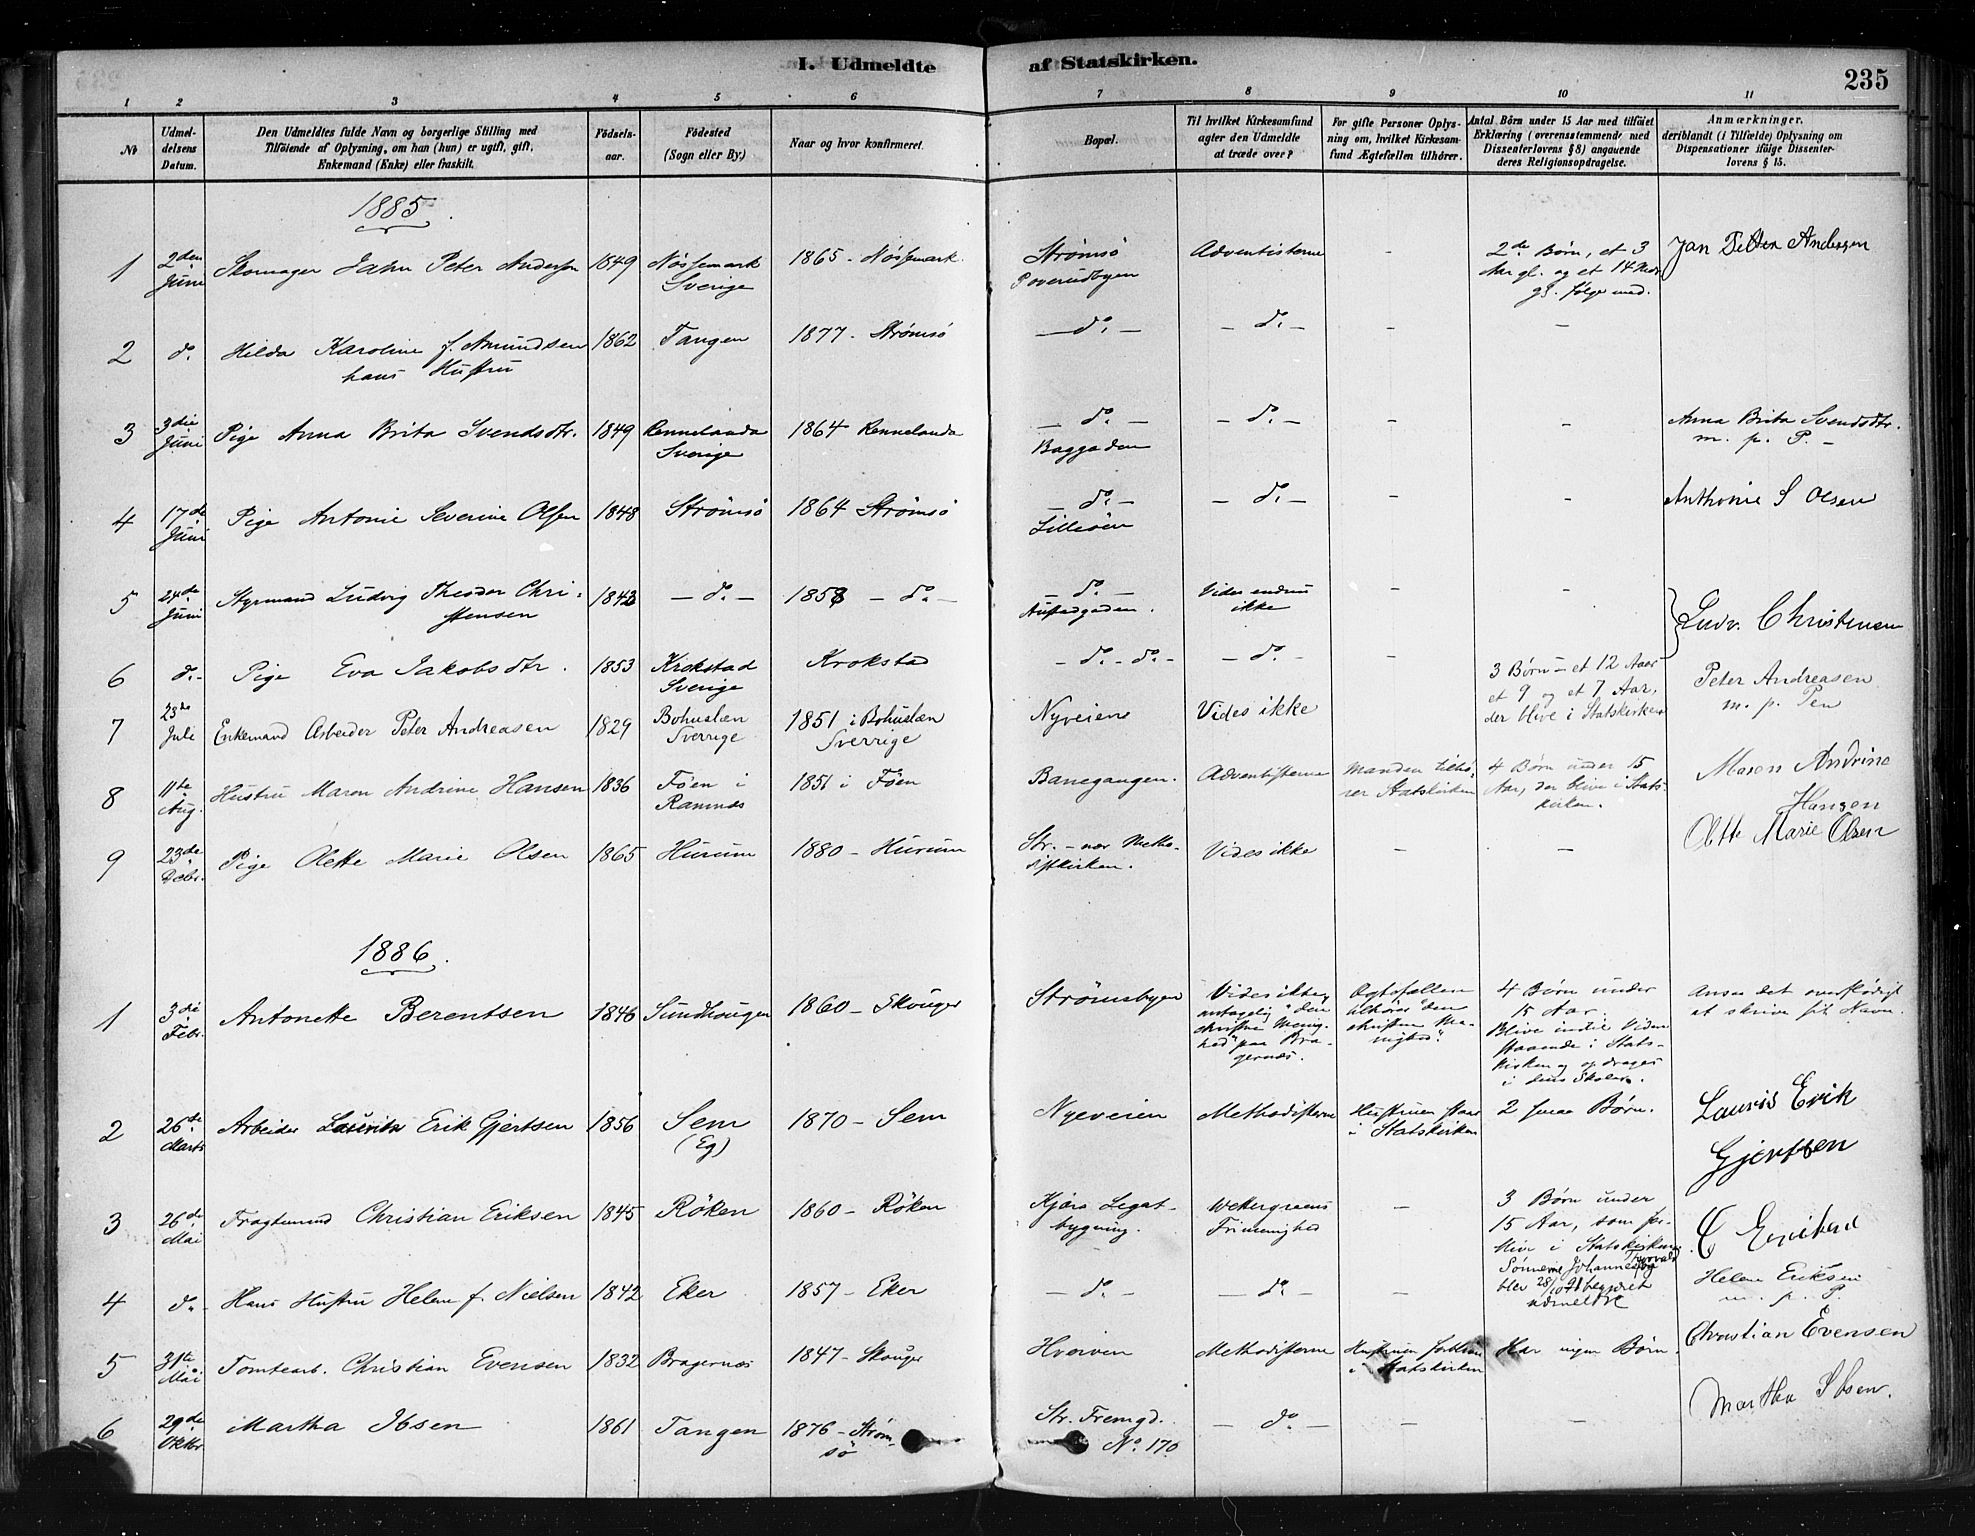 I. Udmeldte af Statskirken.
235
1 2 3 4 5 6 7 8 9 10 11
No
Udmel-
delsens
Datum.
Den Udmeldtes fulde Navn og borgerlige Stilling med
Tilføiende af Oplysning, om han (hun) er ugift, gift,
Enkemand (Enke) eller fraskilt.
Fødsels-
aar.
Fødested
(Sogn eller By.)
Naar og hvor konfirmeret.
Bopæl.
Til hvilket Kirkesamfund
agter den Udmeldte
at træde over?
For gifte Personer Oplys-
ning om, hvilket Kirkesam-
fund Ægtefællen tilhører.
Antal Børn under 15 Aar med tilføiet
Erklæring (overensstemmende med
Dissenterlovens § 8) angaaende
deres Religionsopdragelse.
Anmærkninger,
deriblandt (i Tilfælde) Oplysning om
Dispensationer ifølge Dissenter-
lovens § 15.
1885.
1 2den Juni Skomager Jahn Peter Anderson 1849 Nössemark Sverige 1865 - Nössemark. Strømsø Poverudbyen Adventisterne - 2de Børn, et 3 Aar gl. og et 14 Mdr gl. følge med. Jan Petter Andersen
2 do. Hilda Karoline f. Amundsen hans Hustru 1862 Tangen 1877 - Strømsø - do. - - do. - - -
3 3die Juni Pige Anna Brita Svendsdtr. 1849 Rennelanda Sverige 1864 Rennelanda - do. - Baggaden - do. - - - Anna Brita Svendsdtr. m. p. P. -
4 17de Juni Pige Antonie Severine Olsen 1848 Strømsø 1864 Strømsø - do. - Lilleöen - do. - - - Anthonie S Olsen
5 24de Juni Styrmand Ludvig Theodor Chri-stensen 1843 - do. - 1858 - do. - - do. - Austadgaden. Vides endnu ikke - - Ludv. Christensen
6 do. - Pige Eva Jakobsdtr. 1853 Krokstad Sverige Krokstad - do. - do. - - do. - -
7 23de Juli Enkemand Arbeider Peter Andreasen 1829 Bohuslæn Sverrige 1851 i Bohuslæn Sverrige Nyveiene Vides ikke 3 Børn - et 12 Aar et 9 og et 7 Aar, der blive i Statskirken Peter Andreasen m. p. Pen
8 11te Aug. Hustru Maren Andrine Hansen 1836 Föen i Ramnæs 1851 i Föen Banegangen. Adventisterne Manden tilhö-rer Statskirken 4 Børn under 15 Aar, der blive i Stats-kirken. Maren Andrine Hansen
9 23de Debr. Pige Olette Marie Olsen 1865 Hurum 1880 - Hurum Str. - nær Metho-distkirken. Vides ikke - - Olette Marie Olsen
1886.
1 3die Febr. Antonette Berentsen 1846 Sundhougen 1860 - Skouger Strömsbyen Vides ikke, antagelig "den christne Menig-hed" paa Bra-gernæs. Ægtefællen tilhører "den christne Me-nighed". 4 Børn under 15 Aar. Blive indtil Videre staaende i Stats-kirken og opdrages i dens Skoler. Anser det overflødigt at skrive sit Navn.
2 26de Marts Arbeider Laurits Erik Gjertsen 1856 Sem (Eg) 1870 - Sem Nyeveien Methodisterne Hustruen staar i Statskirken 2 smaa Børn. Lauris Erik Gjertsen
3 26de Mai Fragtemand Christian Eriksen 1845 Röken 1860 - Röken Kjörs Legat-bygning. Wettergreens Frimenighed - 3 Børn under 15 Aar, som for-blive i Statskirken. Sønnerne Johannes og Thorvald blev 28/10 91 begjæret udmeldte C Eriksen
4 do. - Hans Hustru Helene f. Nielsen 1842 Eker 1857 - Eker - do. - - do. - - Helene Eriksen m. p. P.
5 31te Mai Tomtearb. Christian Evensen 1832 Bragernæs 1847 - Skouger Hveiven Methodisterne Hustruen forbliver i Statskirken Har ingen Børn. Christian Evensen
6 29de Oktbr Martha Ibsen 1861 Tangen 1876 - Strøm-sø Str. Fremgd. No. 170 - do. - - - Martha Ibsen.